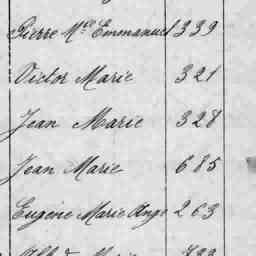 Pierre Mce Emmanuel 339
Victor Marie 321
Jean Marie 328
Jean Marie 685
Eugène Marie Ange 263
Marie 733